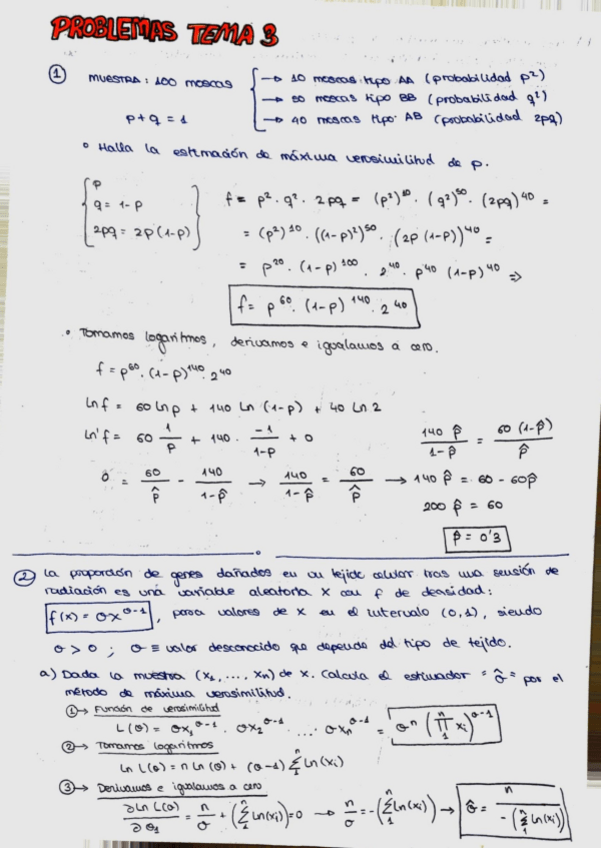 PROBLEMAS TEMA 3
① MUESTRA: 100 moscas → 10 moscas tipo AA (probabilidad p²)
→ 50 moscas tipo BB (probabilidad q²)
p+q = 1 → 40 moscas tipo AB (probabilidad 2pq)
• Halla la estimación de máxima verosimilitud de p.
p
q = 1-p
2pq = 2p(1-p)
f = p² · q² · 2pq = (p²)¹⁰ · (q²)⁵⁰ · (2pq)⁴⁰ =
= (p²)¹⁰ · ((1-p)²)⁵⁰ · (2p(1-p))⁴⁰ =
= p²⁰ · (1-p)¹⁰⁰ · 2⁴⁰ · p⁴⁰ (1-p)⁴⁰ ⇒
f = p⁶⁰ · (1-p)¹⁴⁰ · 2⁴⁰
• Tomamos logaritmos, derivamos e igualamos a cero.
f = p⁶⁰ · (1-p)¹⁴⁰ · 2⁴⁰
Ln f = 60 Ln p + 140 Ln (1-p) + 40 Ln 2
Ln' f = 60 1/p + 140 · -1/1-p + 0
0 = 60/p̂ - 140/1-p̂ → 140/1-p̂ = 60/p̂ → 140 p̂ = 60 - 60p̂
140 p̂/1-p̂ = 60 (1-p̂)/p̂
200 p̂ = 60
p̂ = 0'3
② La proporción de genes dañados en un tejido celular tras una sesión de
radiación es una variable aleatoria X con f de densidad:
f(x) = σx^σ-1, para valores de x en el intervalo (0,1), siendo
σ > 0 ; σ ≡ valor desconocido que depende del tipo de tejido.
a) Dada la muestra (x₁, ..., xₙ) de x. Calcula el estimador "σ̂" por el
método de máxima verosimilitud.
①→ Función de verosimilitud
L(σ) = σx₁^σ-1 · σx₂^σ-1 ... · σxₙ^σ-1 = σⁿ (∏₁ⁿ xᵢ)^σ-1
②→ Tomamos logaritmos
Ln L(σ) = n Ln(σ) + (σ-1) Σ₁ⁿ Ln(xᵢ)
③→ Derivamos e igualamos a cero
∂ Ln L(σ)/∂ σ₁ = n/σ + (Σ₁ⁿ Ln(xᵢ)) = 0 → n/σ = -(Σ₁ⁿ Ln(xᵢ)) → σ̂ = n/-(Σ₁ⁿ Ln(xᵢ))